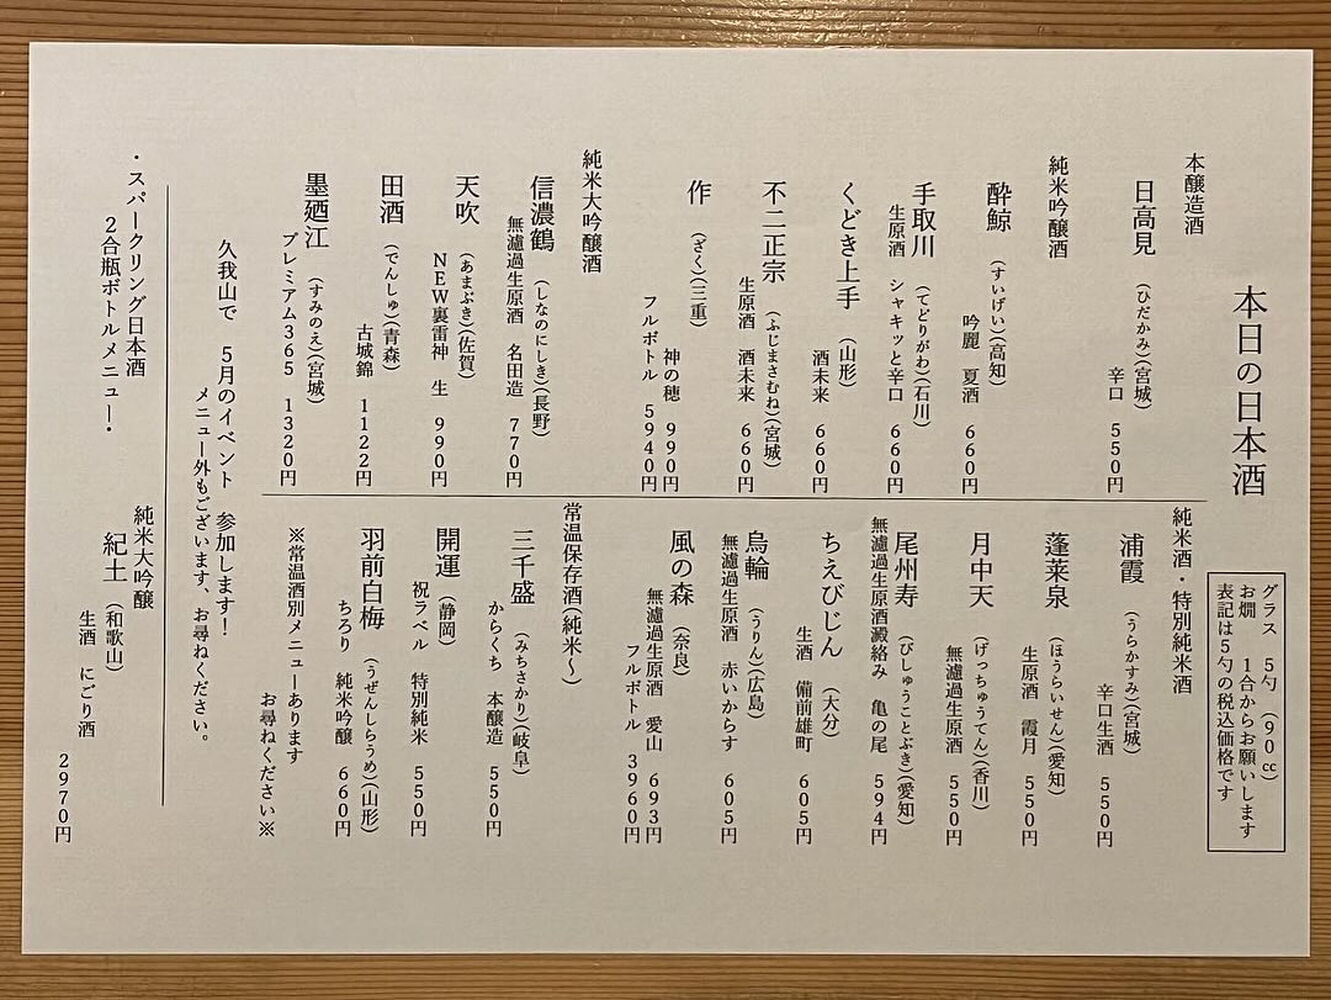 本日の日本酒
グラス　5勺　(90㏄)
お燗　1合からお願いします
表記は5勺の税込価格です
本醸造酒
日高見　(ひだかみ)(宮城)
辛口　550円
純米吟醸酒
酔鯨　(すいげい)(高知)
吟麗　夏酒　660円
手取川　(てどりがわ)(石川)
生原酒　シャキッと辛口　660円
くどき上手　(山形)
酒未来　660円
不二正宗　(ふじまさむね)(宮城)
生原酒　酒未来　660円
作　(ざく)(三重)
神の穂　990円
フルボトル　5940円
純米大吟醸酒
信濃鶴　(しなのにしき)(長野)
無濾過生原酒　名田造　770円
天吹　(あまぶき)(佐賀)
NEW裏雷神　生　990円
田酒　(でんしゅ)(青森)
古城錦　1122円
墨廼江　(すみのえ)(宮城)
プレミアム365　1320円
純米酒・特別純米酒
浦霞　(うらかすみ)(宮城)
辛口生酒　550円
蓬莱泉　(ほうらいせん)(愛知)
生原酒　霞月　550円
月中天　(げっちゅうてん)(香川)
無濾過生原酒　550円
尾州寿　(びしゅうことぶき)(愛知)
無濾過生原酒澱絡み　亀の尾　594円
ちえびじん　(大分)
生酒　備前雄町　605円
烏輪　(うりん)(広島)
無濾過生原酒　赤いからす　605円
風の森　(奈良)
無濾過生原酒　愛山　693円
フルボトル　3960円
常温保存酒(純米〜)
三千盛　(みちさかり)(岐阜)
からくち　本醸造　550円
開運　(静岡)
祝ラベル　特別純米　550円
羽前白梅　(うぜんしらうめ)(山形)
ちろり　純米吟醸　660円
※常温酒別メニューあります
お尋ねください※
久我山で　5月のイベント　参加します!
メニュー外もございます、お尋ねください。
・スパークリング日本酒
2合瓶ボトルメニュー・
純米大吟醸
紀土　(和歌山)
生酒　にごり酒
2970円